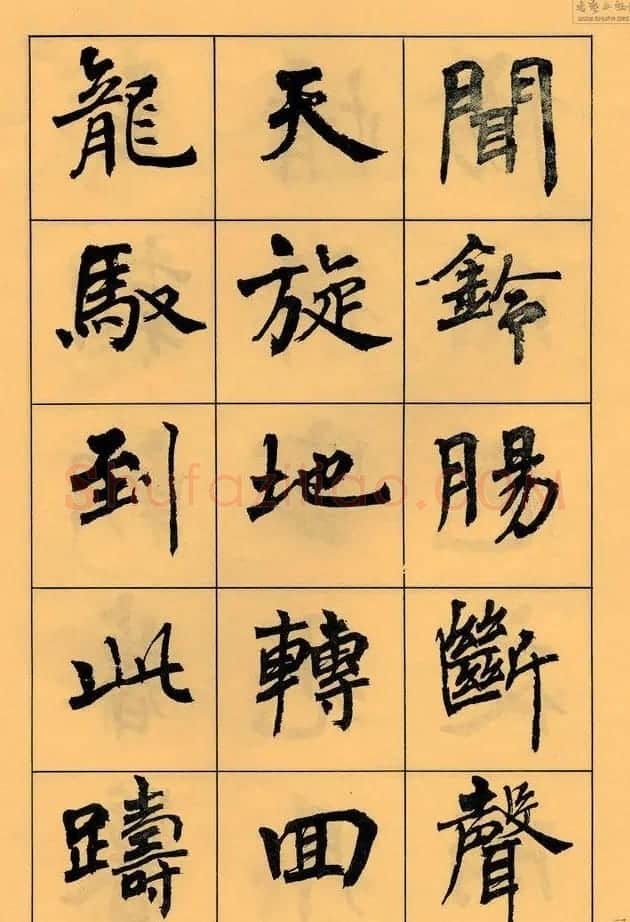 聞鈴腸斷聲
天旋地轉回
龍馭到此躊
Shufaziliao.COM